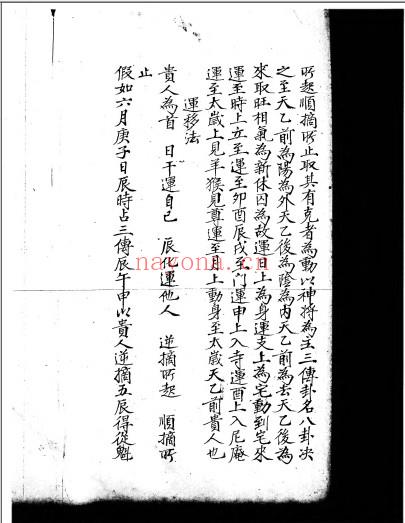 所起順摘所止取其有克者為動以神將為主三傳卦名八卦決
之至天乙前為陽為外天乙後為陰為內天乙前為去天乙後為
來取旺相氣為新休囚為故運日上為身運支上為宅動到宅來
運至時上立至運至卯酉辰戌至門運申上入寺運酉上入尼庵
運至太歲上見羊猴見尊運至月上動身至太歲天乙前貴人也
運移法
貴人為首 日干運自己 辰化運他人 逆摘所起 順摘所
止
假如六月庚子日辰時占三傳辰午申以貴人逆摘五辰得從魁
nayona.cn